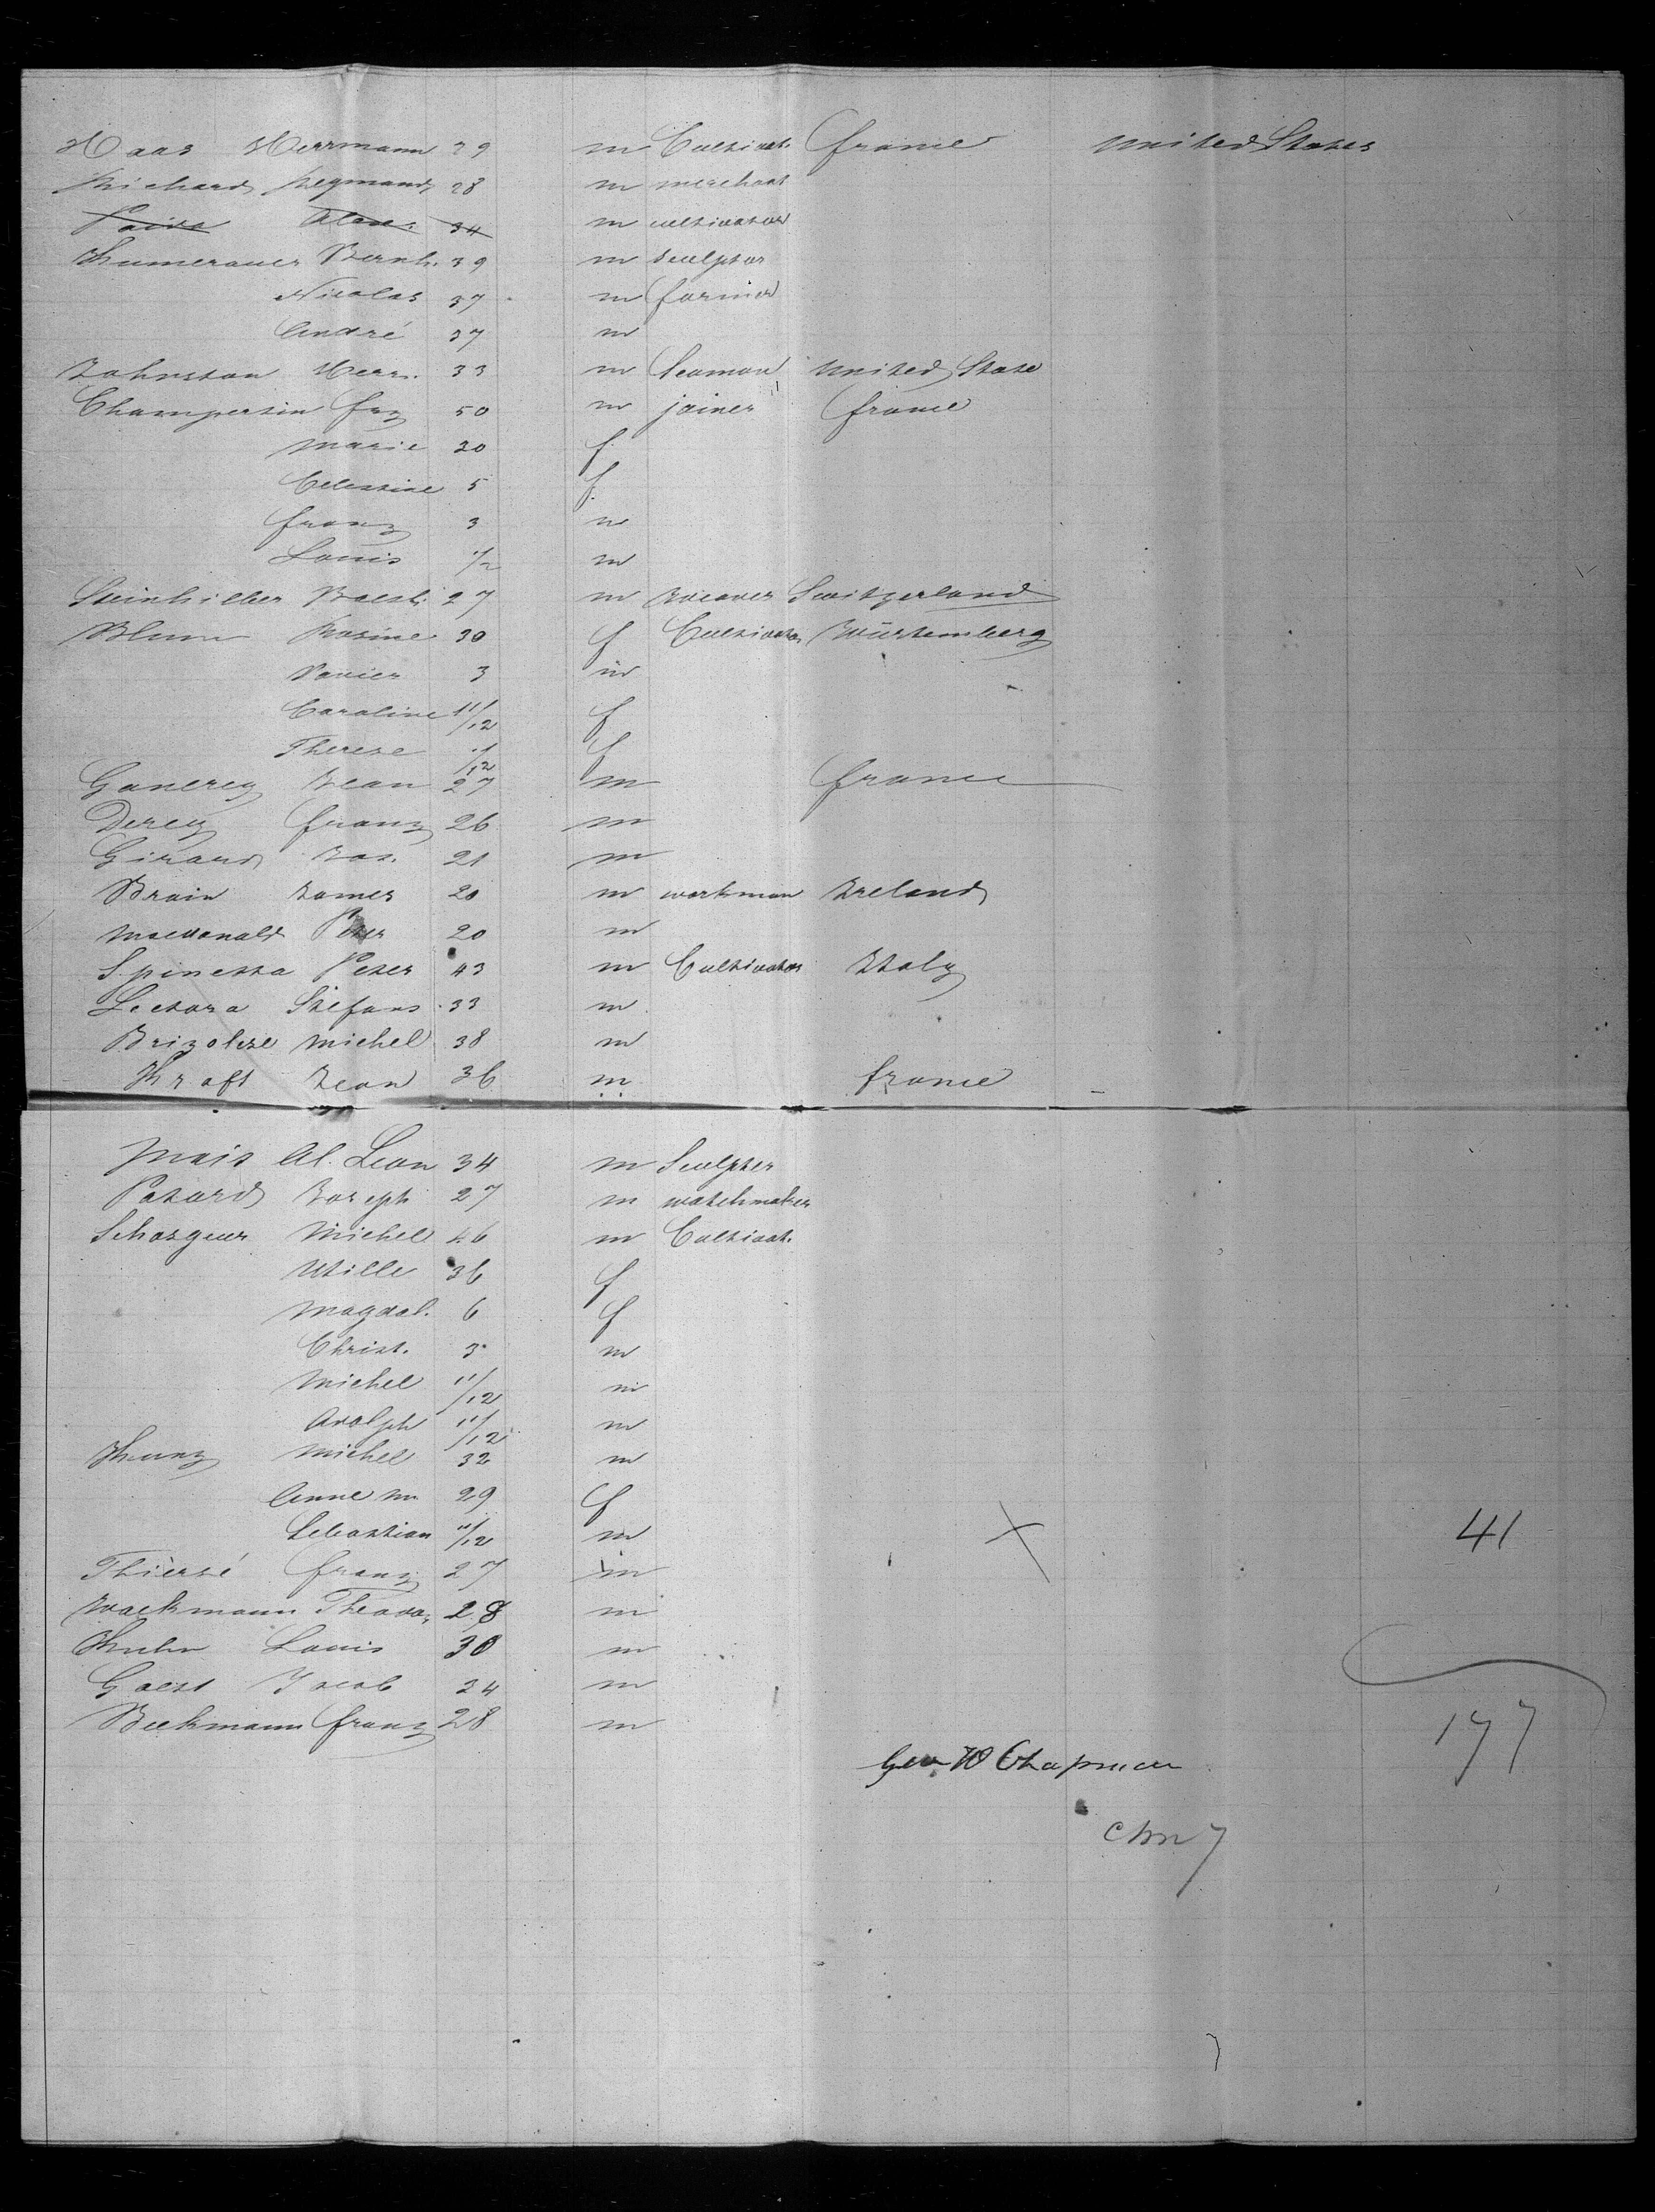 Haas Herrmann 29 m Cultivat. France United States
Richard Regmand 28 m merchant
34 m cultivator
Kumerauer Bernh. 39 m sculptor
Nicolas 37 m farmer
André 37 m
Johnston Herr. 33 m Seaman United State
Champersin frz 50 m joiner france
Marie 30 f
Celestine 5 f.
franz 3 m
Louis 1/2 m
Steinhilber 27 m weaver Switzerland
Blum Rosine 30 f Cultivator Würtemberg
Xavier 3 m
Caroline 11/12 f
Therese 1/12 f
Ganerey Jean 27 m france
Derey franz 26 m
Girard Jos. 21 m
Brain James 20 m workman Ireland
macdonald Peter 20 m
Spinetta Peter 43 m Cultivator Italy
Lectora Stefans 33 m
Brizolese michel 38 m
Kraft Jean 36 m france
Mais Al. Leon 34 m Sculpter
Patard Joseph 27 m watchmaker
Schasgeur Michel 46 m Cultivat.
Utille 36 f
Magdal. 6 f
Christ. 3 m
Michel 11/12 m
Adolph 11/12 m
Kunz Michel 32 m
Anne m 29 f
Sebastian 11/12 m 41
Thiersé franz 27 m
Wackmann Theodo. 28 m
Kuhn Louis 30 m
Gaest Jacob 24 m
Beckmann franz 28 m 177
Geo W Chapman